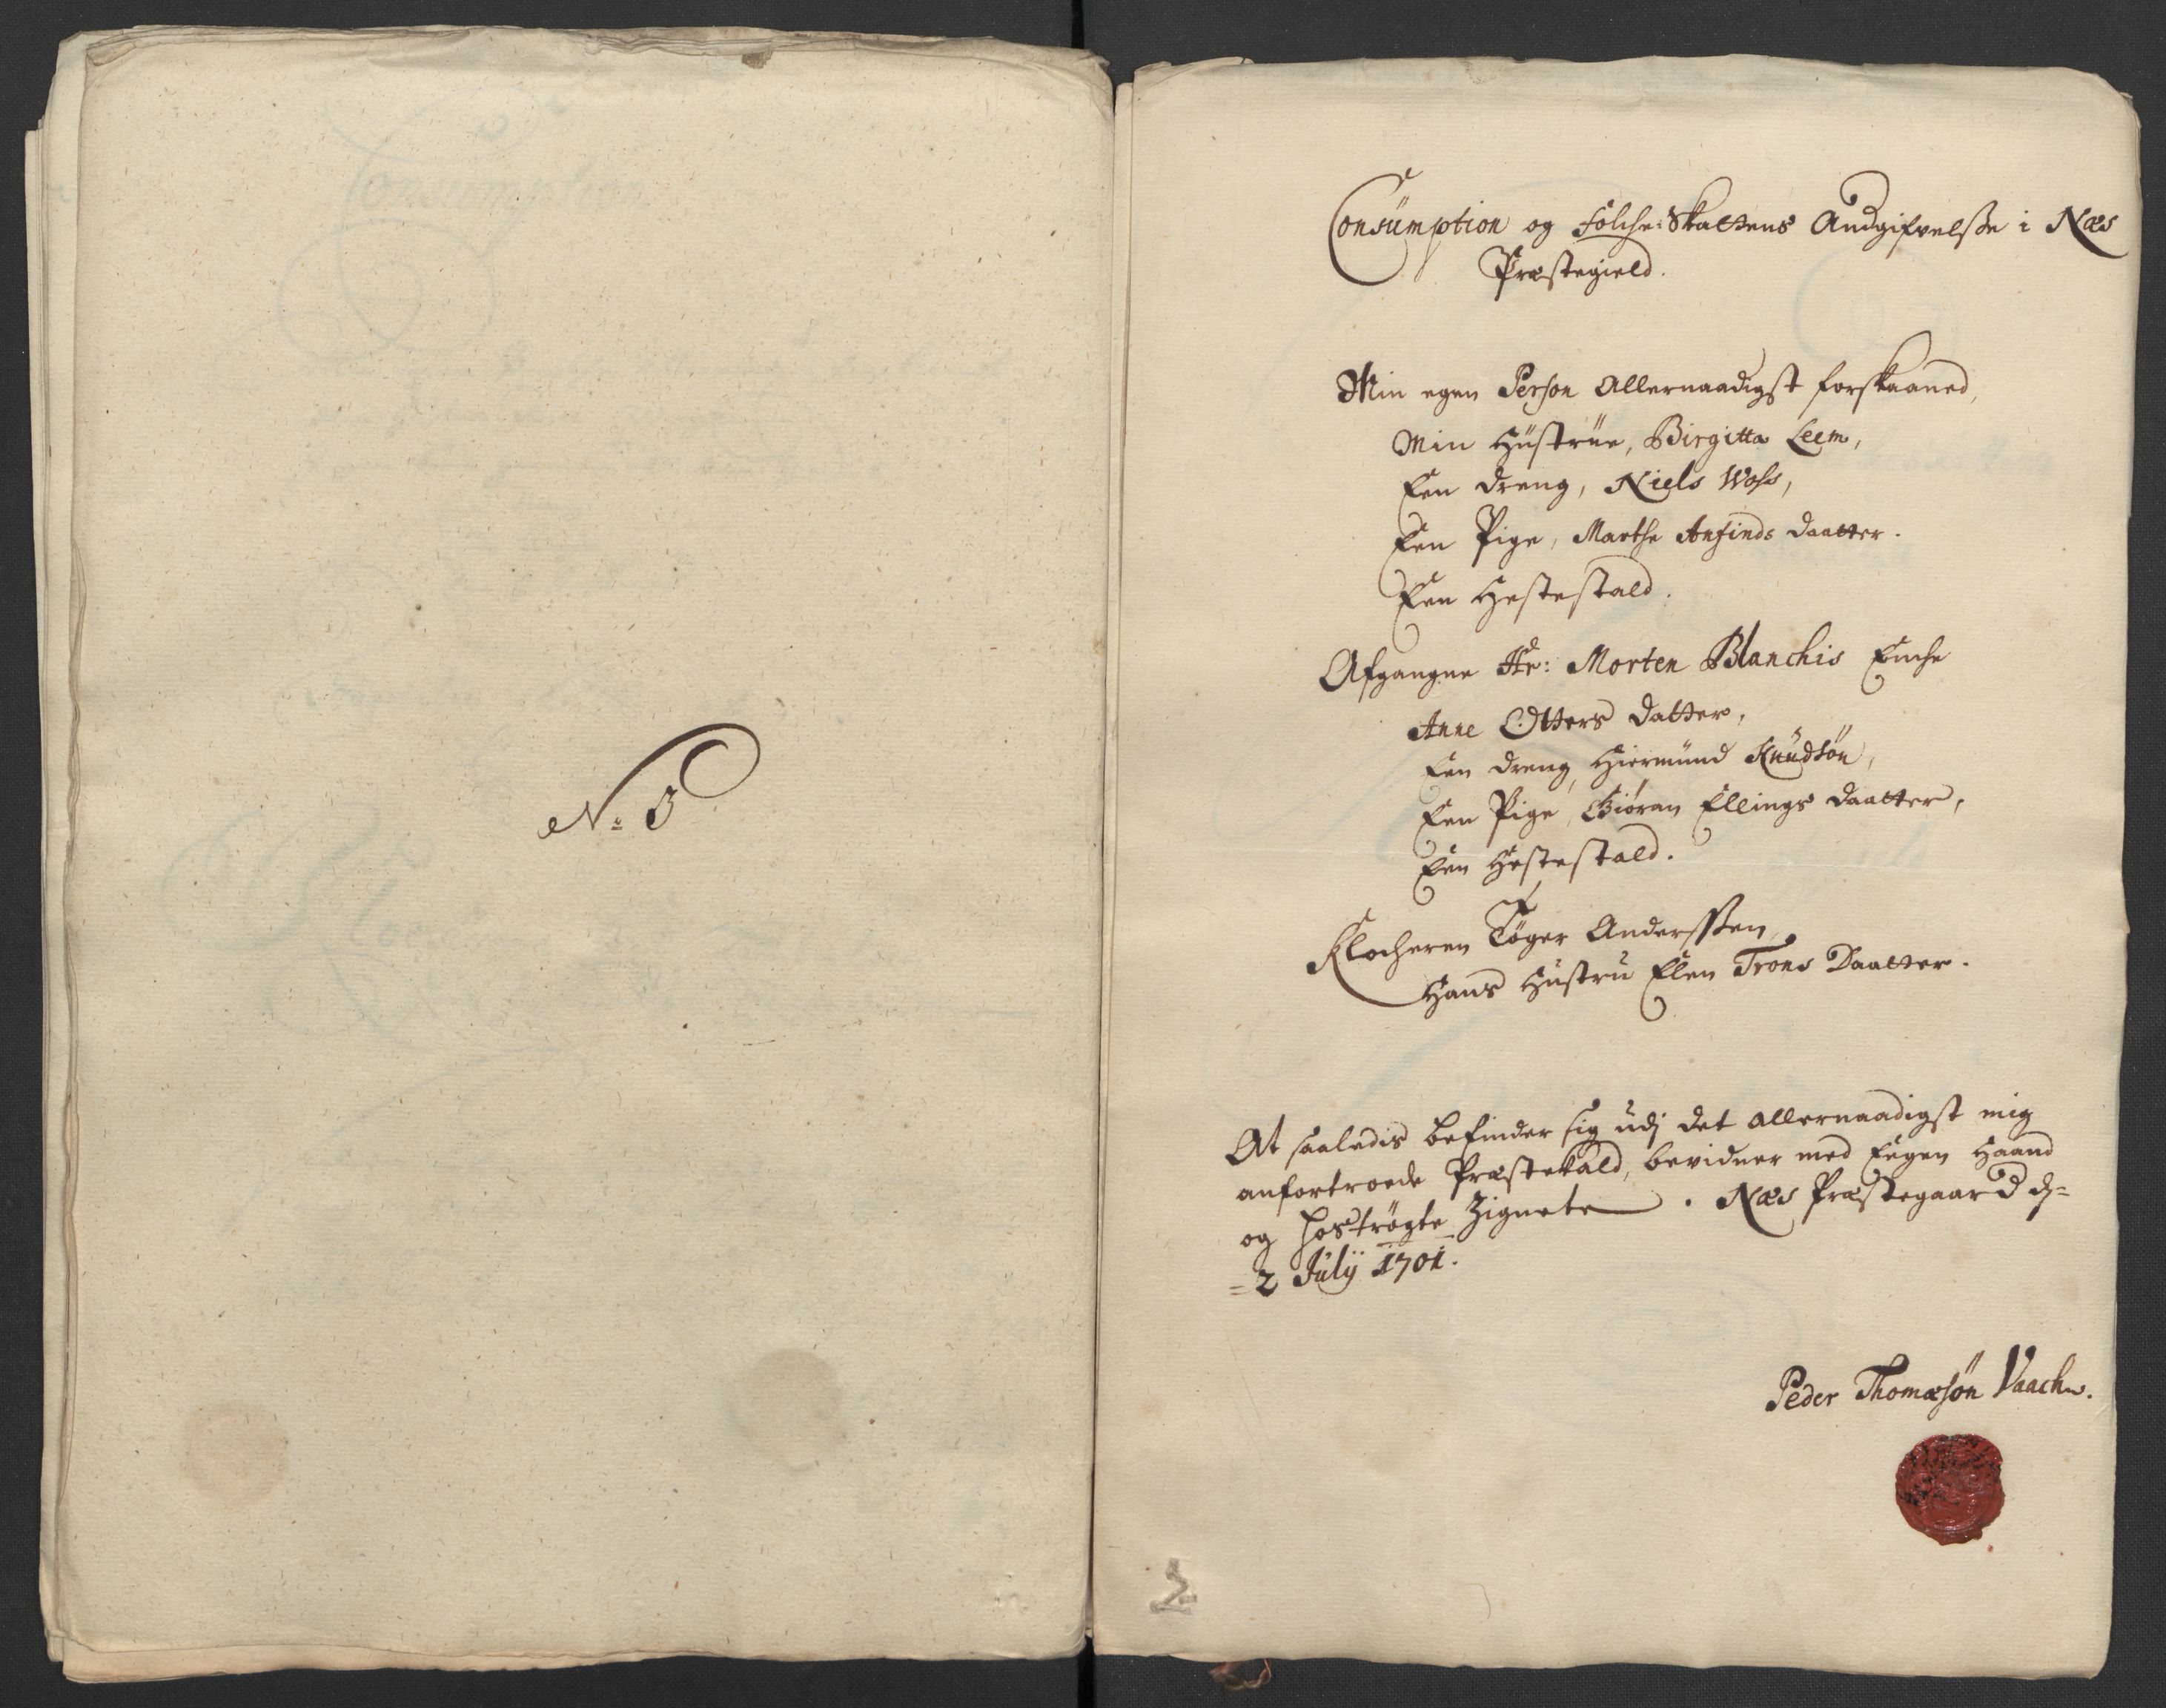 N: 3
Consumption og Folche-Skattens Andgifvelsse i Næs
Præstegield.
Min egen Person Allernaadigst forskaaned,
Min Hüstrüe, Birgitta Leem,
Een dreng, Niels Woss,
Een Pige, Marthe Anfinds daatter.
Een Hestestald.
Afgangne Hr: Morten Blanchis Enche
Anne Otters datter,
Een dreng, Hiermünd Knüdsön,
Een Pige, Giöran Ellings daatter,
Een Hestestald.
Klocheren Töger Anderssen,
Hans Hüstrü Elen Trons Daatter.
At saaledis befinder sig üdj det allernaadigst mig
anfortroede Præstekald, bevidner med Eegen Haand
og hoströgte Zignete. Næs Præstegaard d=
=2 Julij 1701.
Peder Thomæsön Vaach.